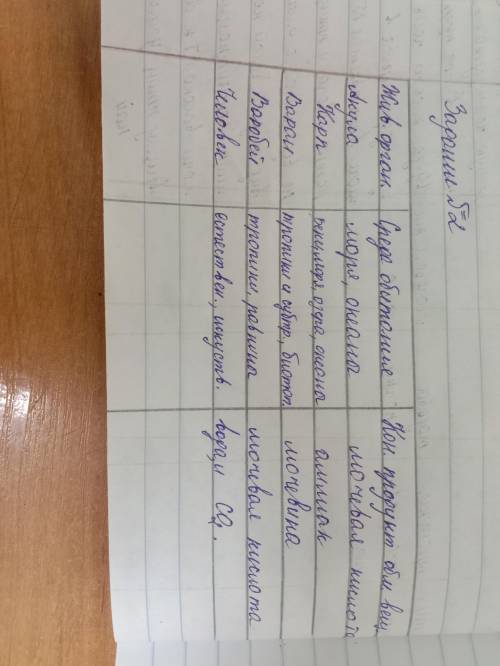 Задание №2
Жив. орган. Среда обитание Кон. продукт обм. вещ
Акула моря, океана мочевая кислота
Карп озера, океана аммиак
Варан тропики и субтр., биотоп. мочевина
Воробей тропики, равнина мочевая кислота
Человек естествен., искуств. вода, и CO₂.